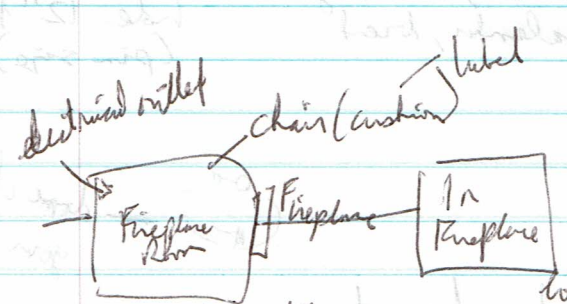 label
electrical outlet
chair (cushion)
Fireplace
Room
Fireplace
In
Fireplace